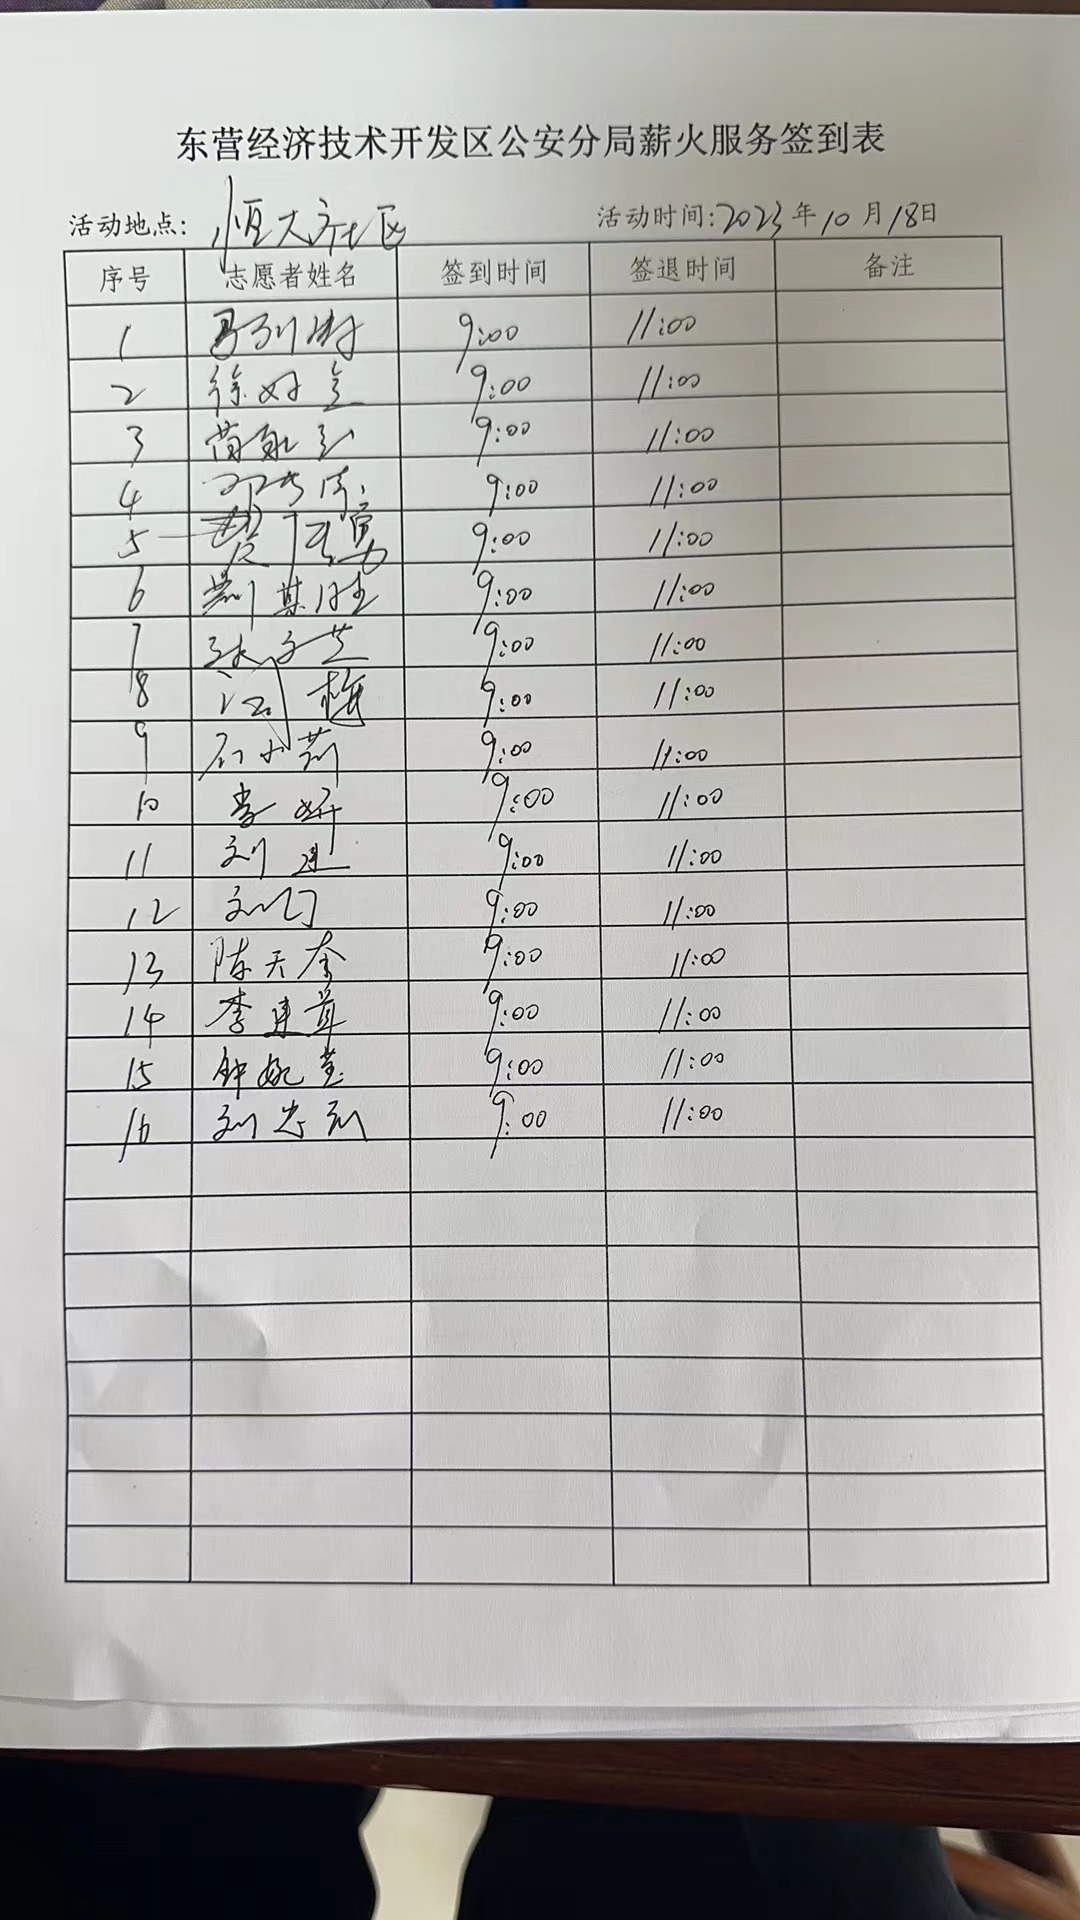 东营经济技术开发区公安分局薪火服务签到表
活动地点: 恒大社区 活动时间: 2023年10月18日
序号 志愿者姓名 签到时间 签退时间 备注
1 9:00 11:00
2 徐 9:00 11:00
3 9:00 11:00
4 邓 9:00 11:00
5 9:00 11:00
6 9:00 11:00
7 张 芝 9:00 11:00
8 江梅 9:00 11:00
9 石小莉 9:00 11:00
10 李妍 9:00 11:00
11 刘建 9:00 11:00
12 刘 9:00 11:00
13 陈天奎 9:00 11:00
14 李建 9:00 11:00
15 钟婉莹 9:00 11:00
16 刘忠 9:00 11:00